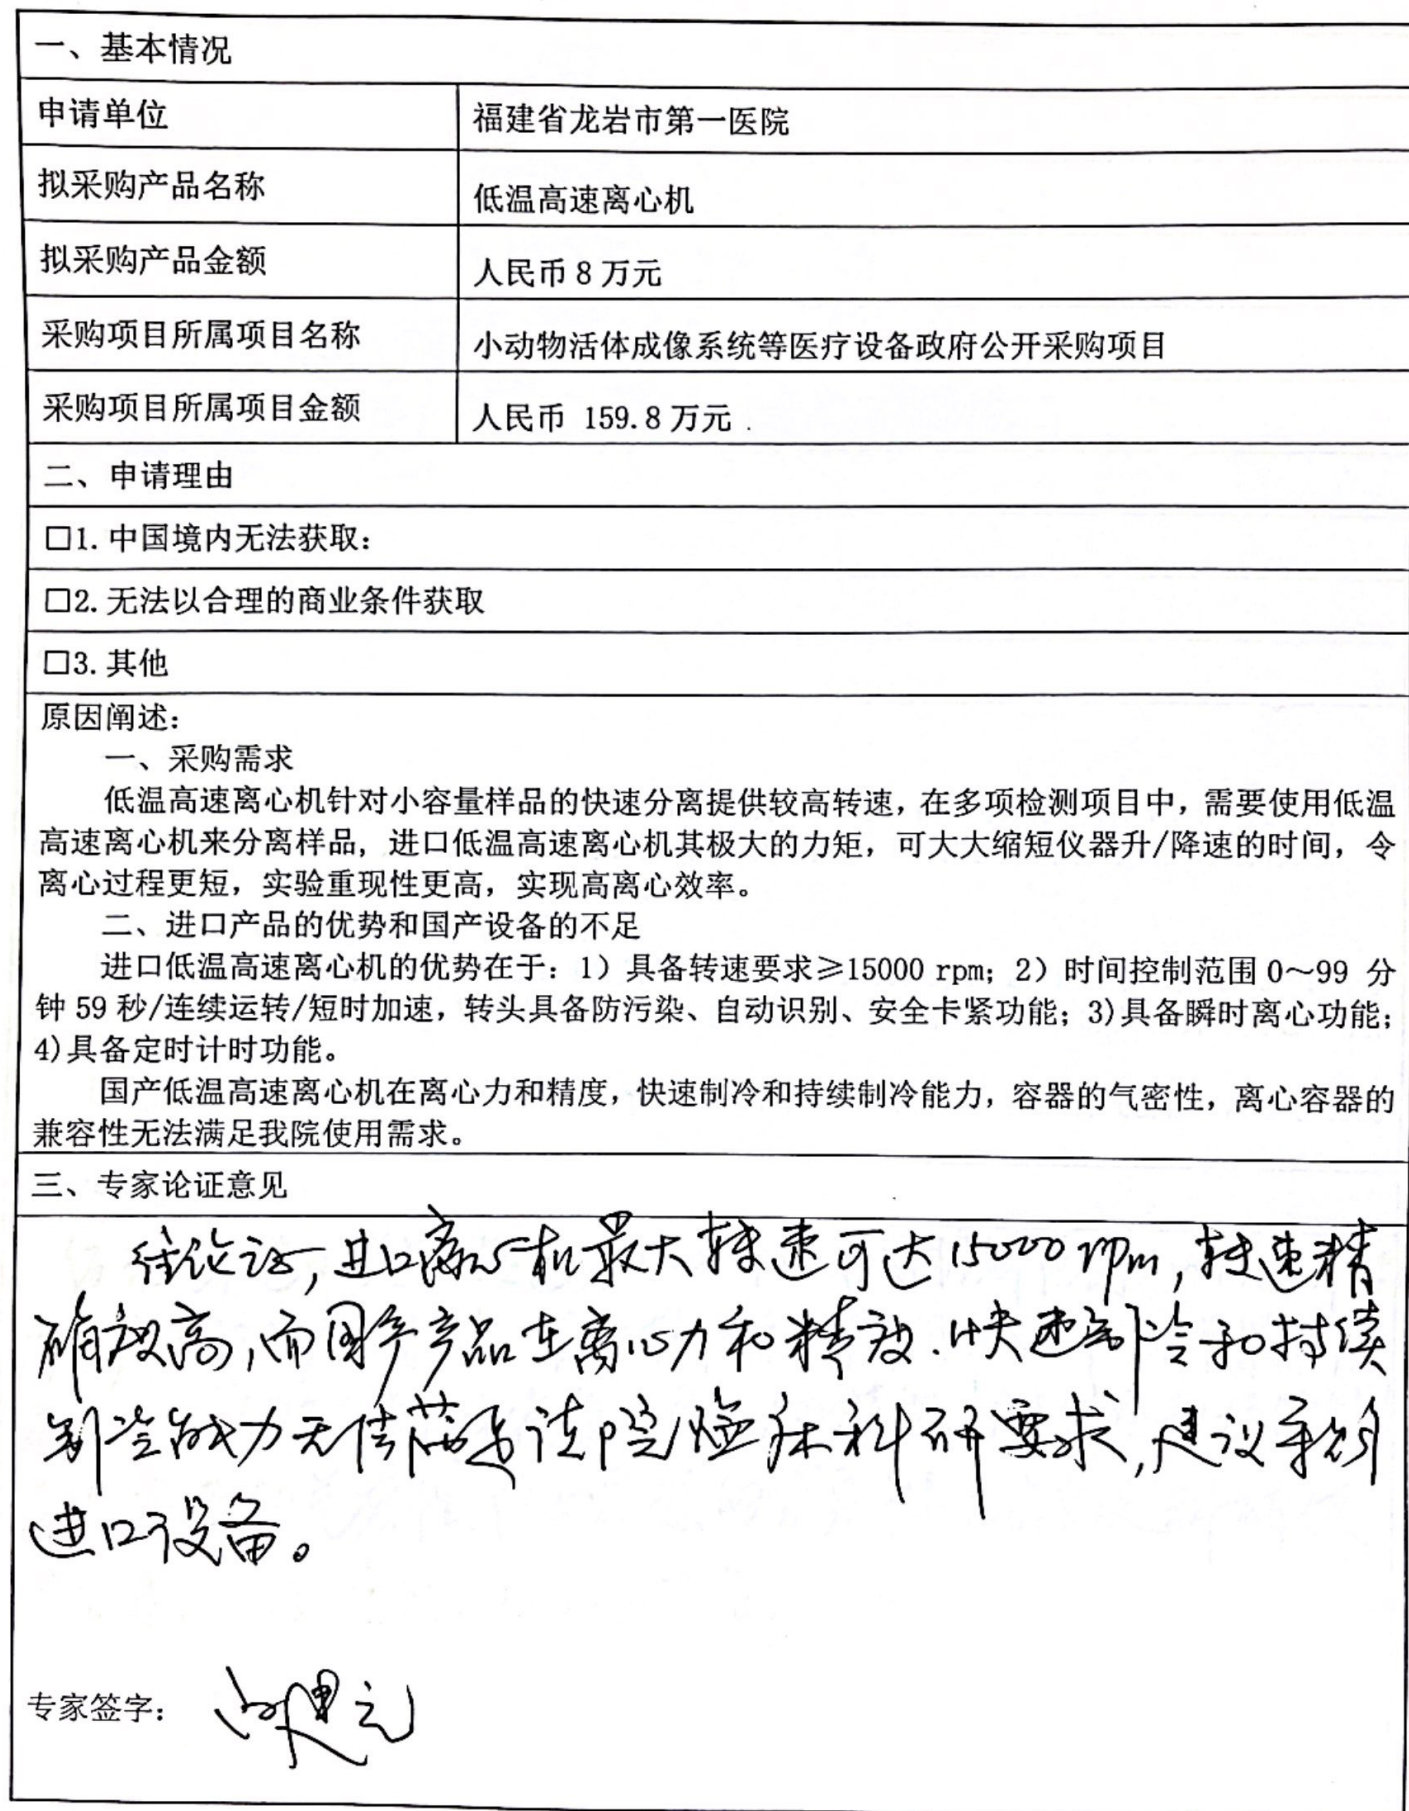 一、基本情况
申请单位 福建省龙岩市第一医院
拟采购产品名称 低温高速离心机
拟采购产品金额 人民币 8 万元
采购项目所属项目名称 小动物活体成像系统等医疗设备政府公开采购项目
采购项目所属项目金额 人民币 159.8 万元
二、申请理由
□1. 中国境内无法获取：
□2. 无法以合理的商业条件获取
□3. 其他
原因阐述：
一、采购需求
低温高速离心机针对小容量样品的快速分离提供较高转速，在多项检测项目中，需要使用低温
高速离心机来分离样品，进口低温高速离心机其极大的力矩，可大大缩短仪器升/降速的时间，令
离心过程更短，实验重现性更高，实现高离心效率。
二、进口产品的优势和国产设备的不足
进口低温高速离心机的优势在于：1）具备转速要求≥15000 rpm；2）时间控制范围 0～99 分
钟 59 秒/连续运转/短时加速，转头具备防污染、自动识别、安全卡紧功能；3)具备瞬时离心功能；
4)具备定时计时功能。
国产低温高速离心机在离心力和精度，快速制冷和持续制冷能力，容器的气密性，离心容器的
兼容性无法满足我院使用需求。
三、专家论证意见
经论证，进口离心机最大转速可达15000 rpm，转速精
确度高，而国产产品在离心力和精度、快速制冷和持续
制冷能力无法满足该院临床科研要求，建议采购
进口设备。
专家签字：